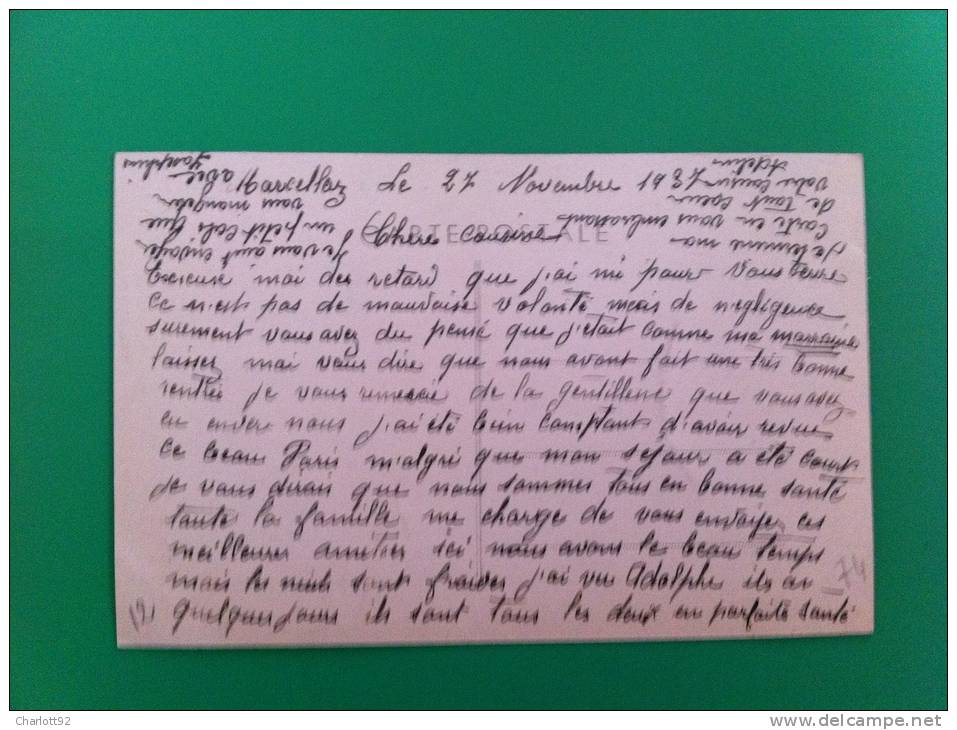 Marcellaz Le 27 Novembre 1937
CARTE POSTALE
Chere cousine
Excuse moi des retard que j'ai mi pour vous
Ce n'est pas de mauvaise volonté mais de négligence
surement vous avez du pensé que j'était comme ma marraine
laissez moi vous dire que nous avont fait une très bonne
rentrée je vous remercie de la gentillesse que vous avez
en enver nous j'ai été bien comptant d'avoir revue
ce beau Paris malgré que mon séjour a été court
je vous dirais que nous sommes tous en bonne santé
toute la famille me charge de vous envoye ces
meilleures amitiés ici nous avons le beau temps
mais les nuits sont froides j'ai vu Adolphe il
quelques jours ils sont tous les deux en parfaite santé
74
je termine ma
carte en vous embrassant
de tout coeur
votre cousin
Je vous avait envoyer
un petit colis que
vous mangeler
avec
Josephine
Charlott92